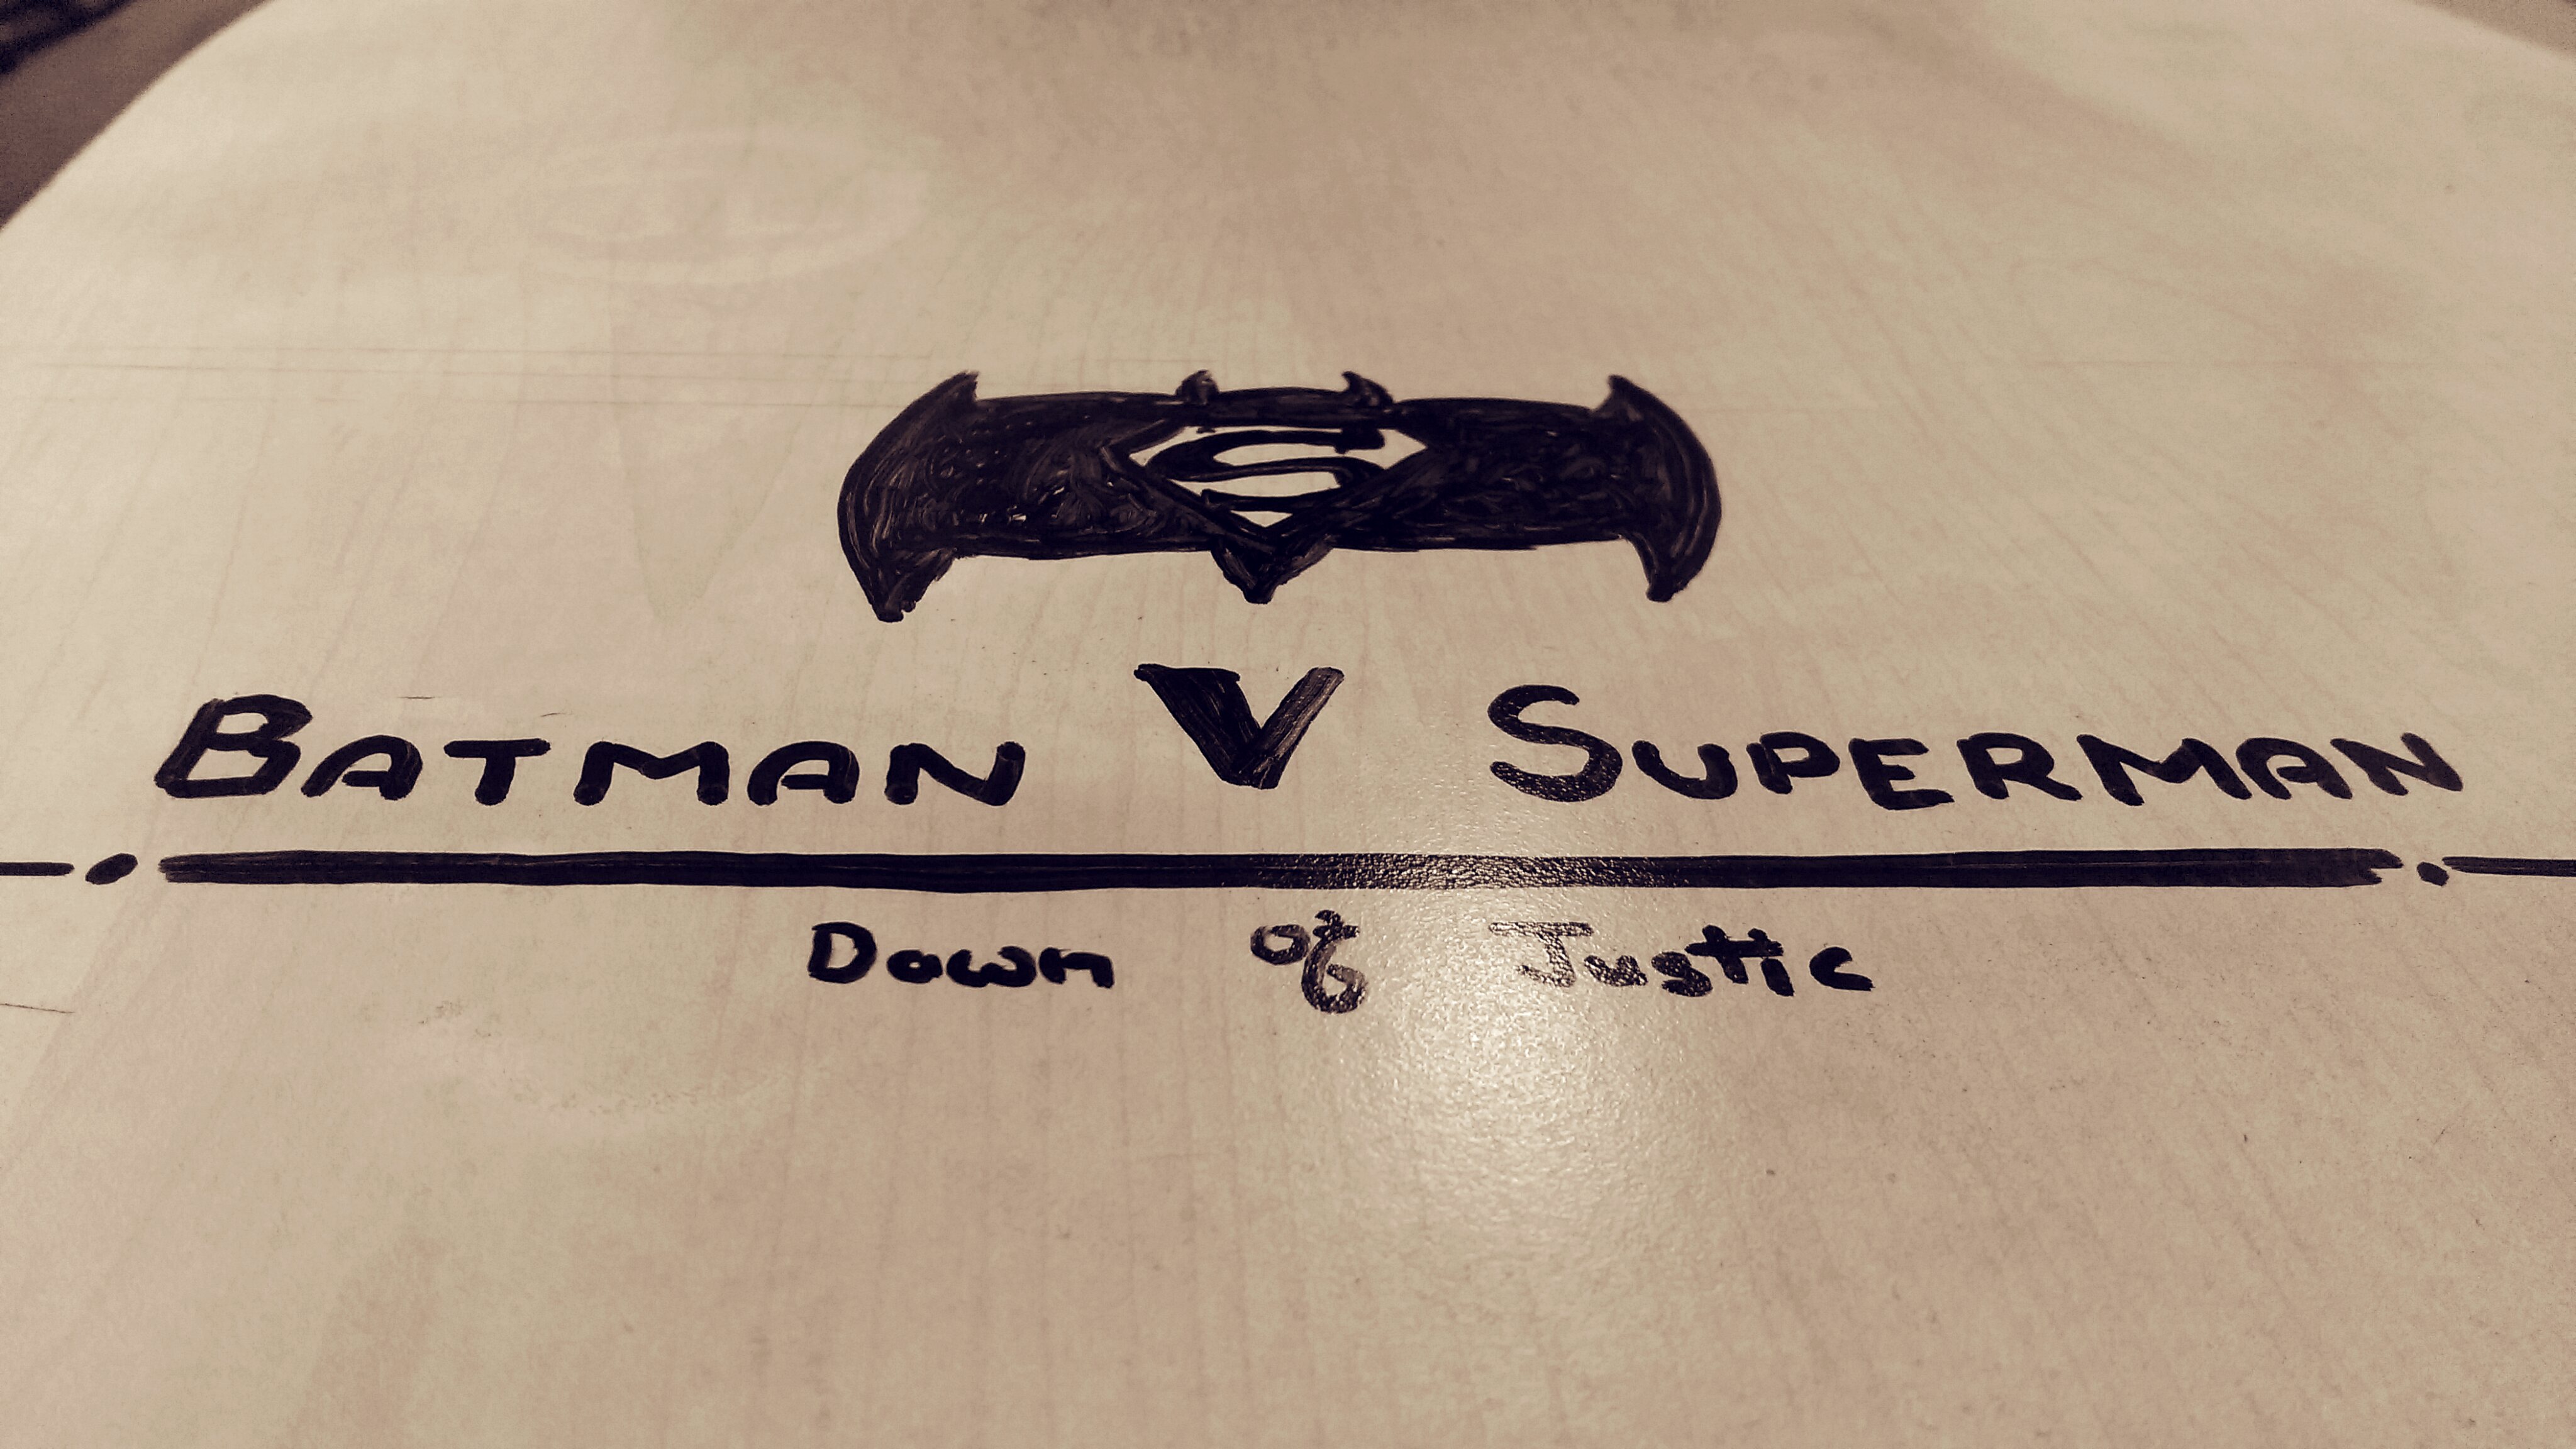 S
BATMAN V SUPERMAN
Dawn of Justic